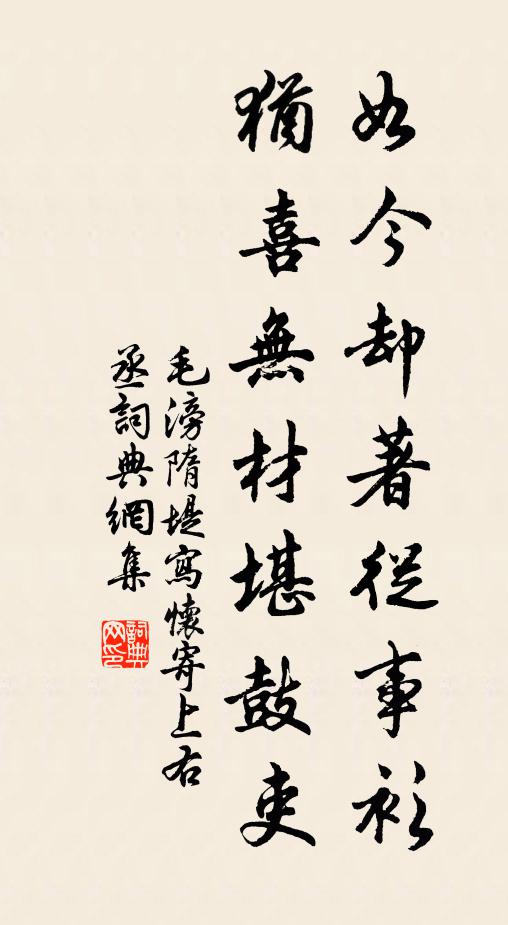 如今却著從事衫
猶喜無材堪鼓吏
毛滂隋堤寫懷寄上右
丞詞典網集
詞典
网印